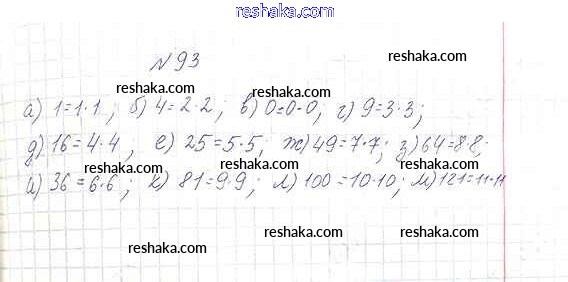 reshaka.com
№93
reshaka.com
reshaka.com
reshaka.com
а) 1=1·1; б) 4=2·2; в) 0=0·0; г) 9=3·3;
reshaka.com
reshaka.com
д) 16=4·4, е) 25=5·5; ж) 49=7·7; з) 64=8·8;
reshaka.com
reshaka.com
reshaka.com
и) 36=6·6; к) 81=9·9; л) 100=10·10; м) 121=11·11
reshaka.com
reshaka.com